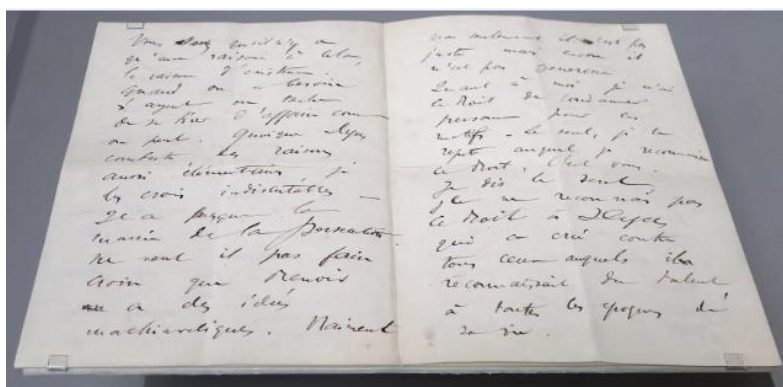 Vous savez qu'il n'y a
qu'une raison à cela,
la raison d'existence.
Quand on a besoin
d'argent on tache
de se tirer d'affaire comme
on peut. Quoique Degas
conteste des raisons
aussi élémentaires je
les crois indiscutables —
Il a presque la
manie de la persécution
ne veut il pas faire
croire que Renoir
a des idées
machiavéliques. Vraiment
non seulement il n'est pas
juste mais encore il
n'est pas généreux
Quant à moi je n'ai
le droit de condamner
personne pour ces
motifs - Le seul, je le
répète auquel je reconnaisse
ce droit, c'est vous.
Je dis le seul
je ne reconnais pas
ce droit à Degas
qui a crié contre
tous ceux auxquels il
reconnaissait du talent
à toutes les époques de
sa vie.